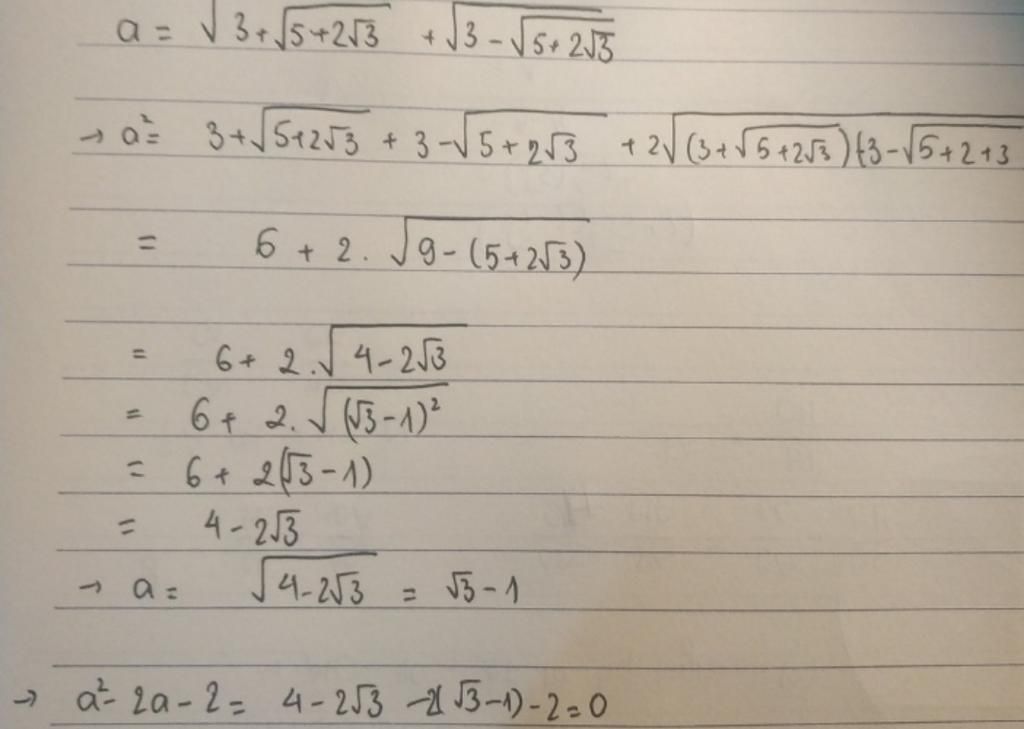 a = √(3+√(5+2√3)) + √(3-√(5+2√3))
→ a² = 3+√(5+2√3) + 3-√(5+2√3) + 2√((3+√(5+2√3))(3-√(5+2+3
= 6 + 2.√(9-(5+2√3))
= 6 + 2.√(4-2√3)
= 6 + 2.√((√3-1)²)
= 6 + 2(√3-1)
= 4-2√3
→ a = √(4-2√3) = √3-1
→ a²-2a-2 = 4-2√3 -2(√3-1)-2=0